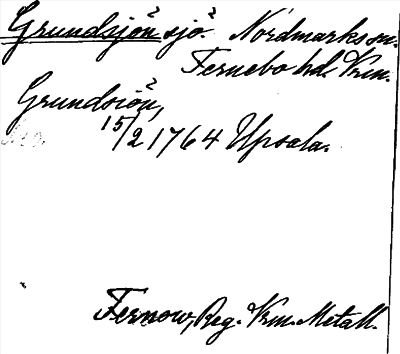 Grundsjön sjö. Nordmarks sn.
Fernebo hd. Vrm.
Grundsiön,
15/2 1764 Upsala.
Fernow, Reg. Vrm. Metall.